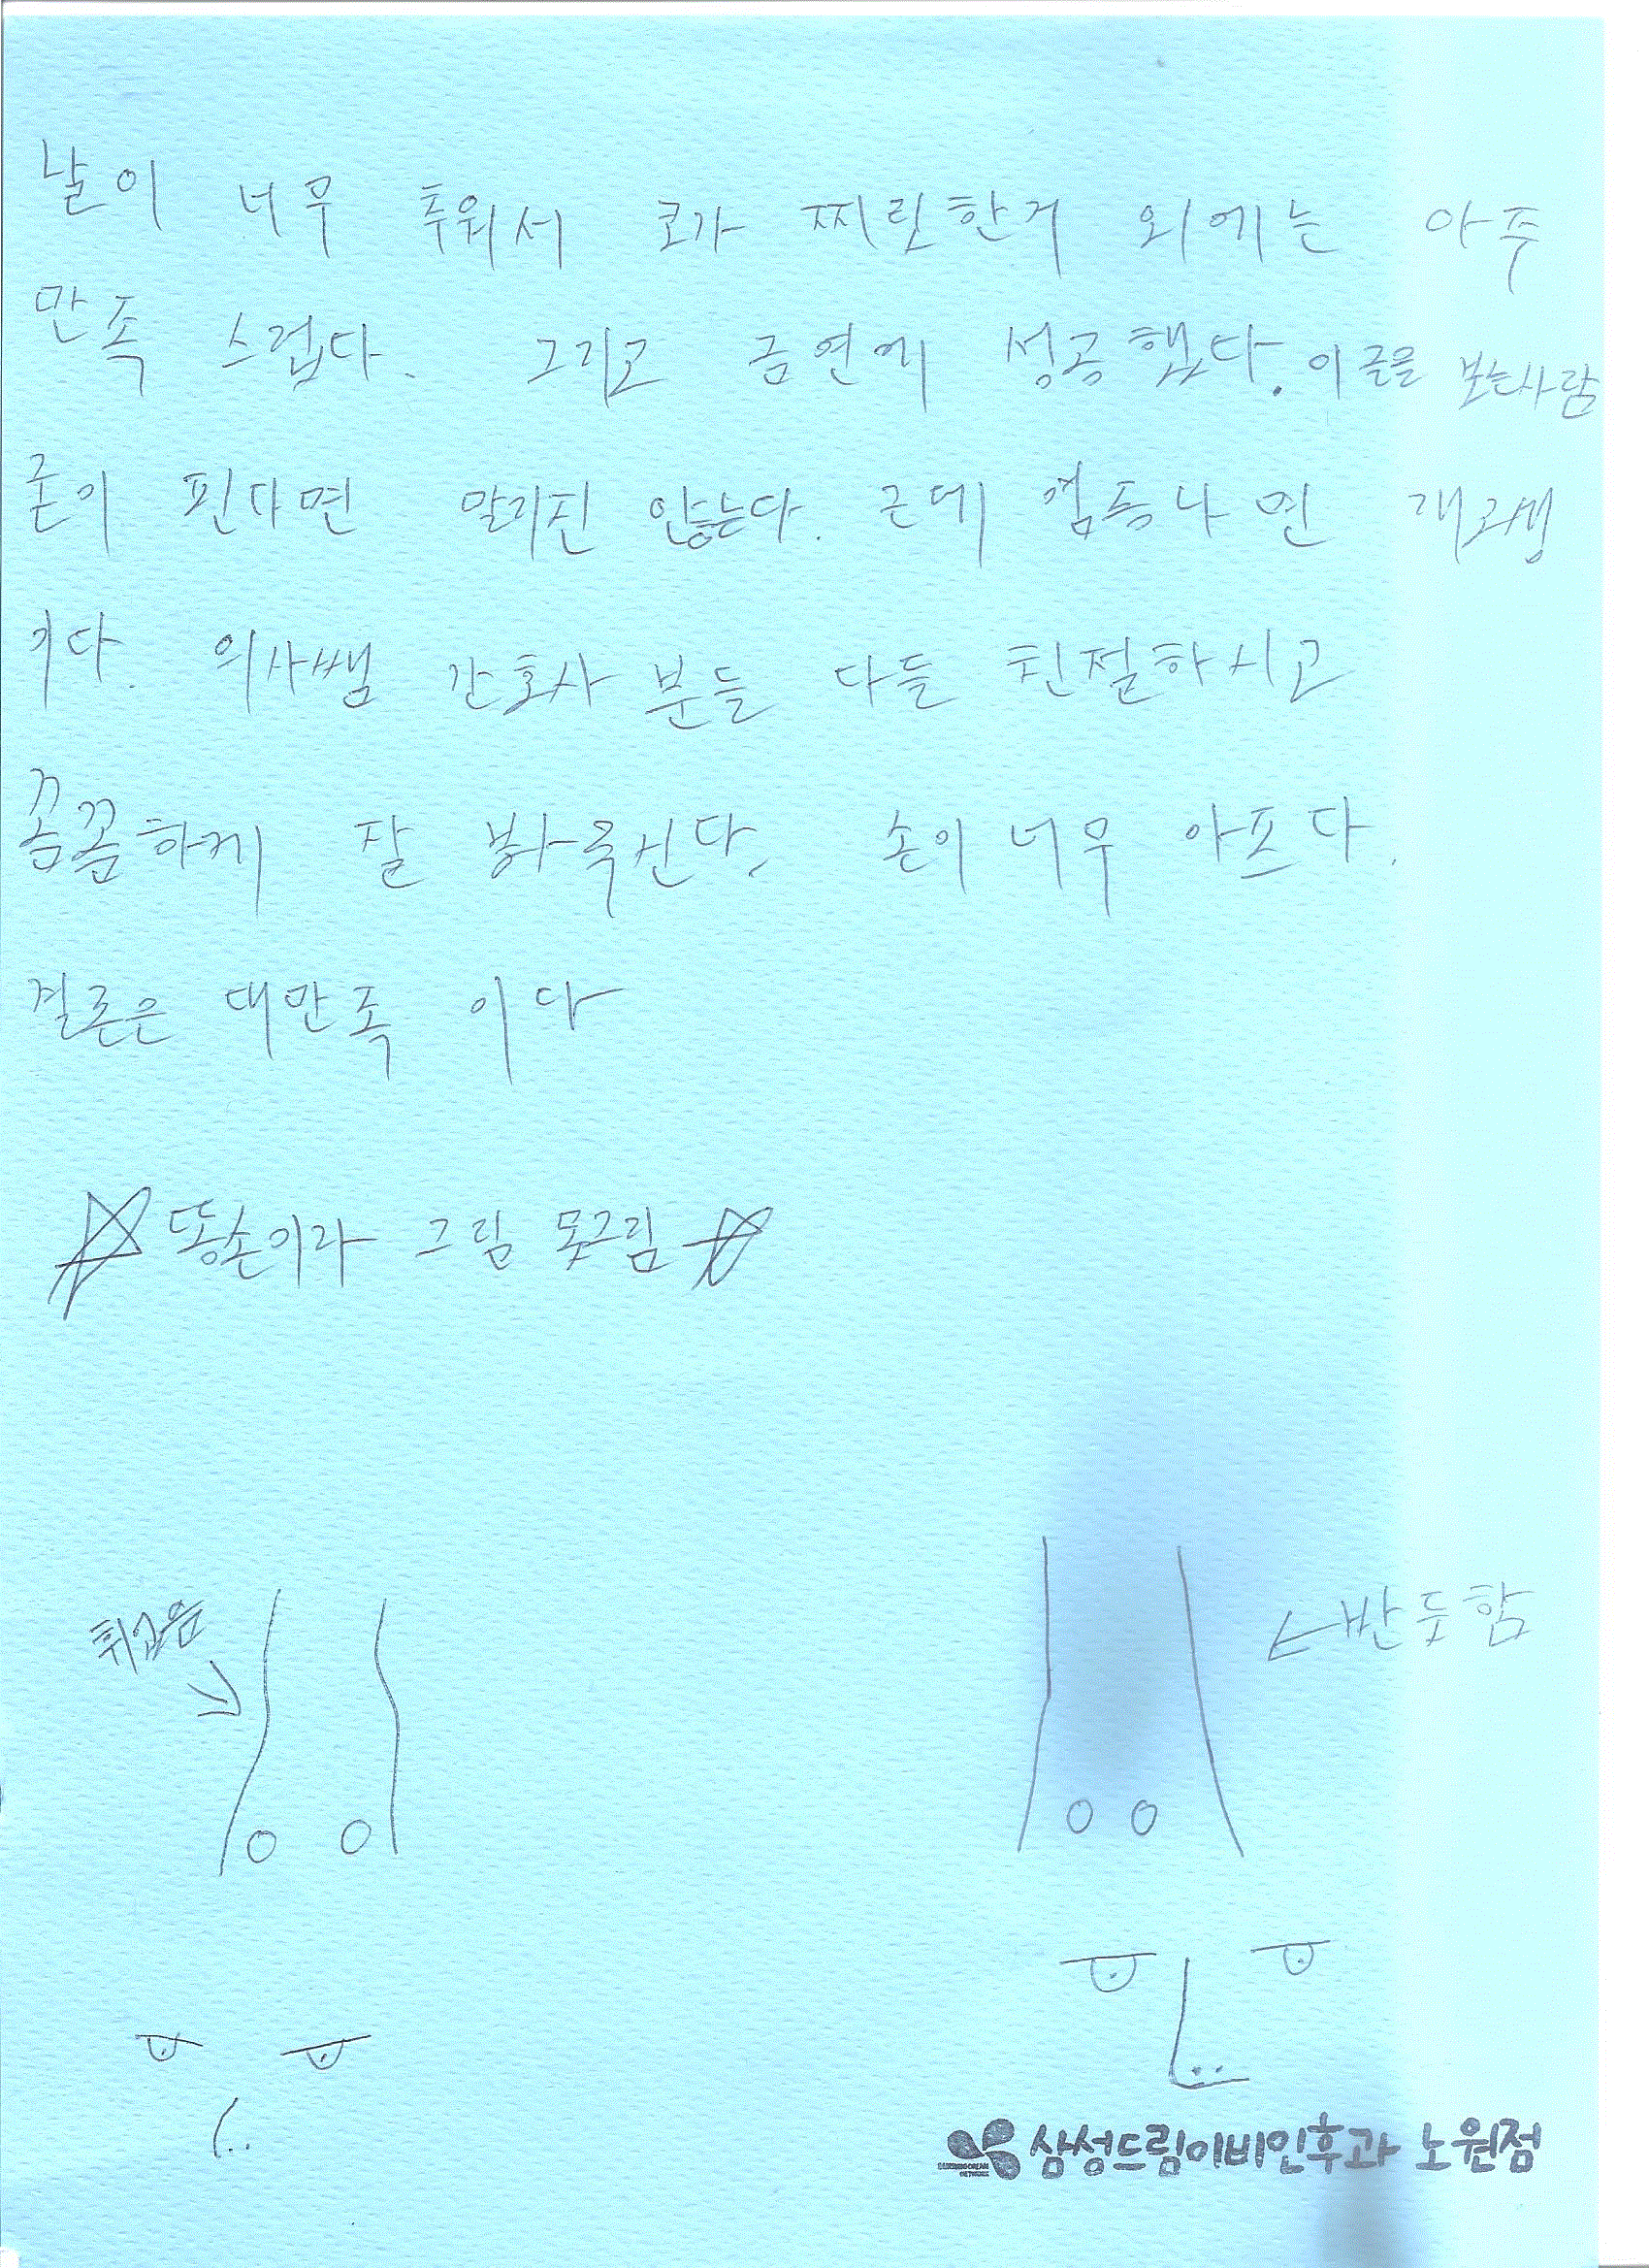 날이 너무 추워서 코가 찌릿한거 외에는 아주
만족 스럽다. 그리고 금연에 성공했다. 이글을 보는사람
들이 핀다면 말리진 않는다. 근데 염증나면 개고생
기다. 의사쌤 간호사 분들 다들 친절하시고
꼼꼼하게 잘 봐주신다. 손이 너무 아프다.
결론은 대만족 이다
똥손이라 그림 못그림
휘었음
반듯함
삼성드림이비인후과 노원점